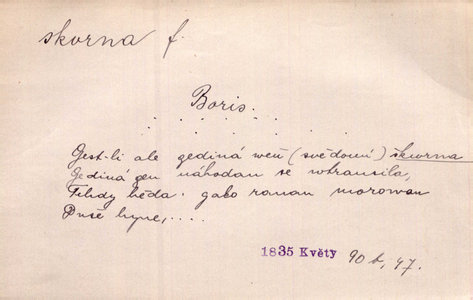 skvrna f.
Boris.
. . . . . . . .
Gest-li ale gediná weň (svědomí) škwrna
Gediná gen náhodau se wtrausila,
Tehdy běda. gako ranau morowau
Duše hyne, . . . .
1835 Květy 90 b, 47.